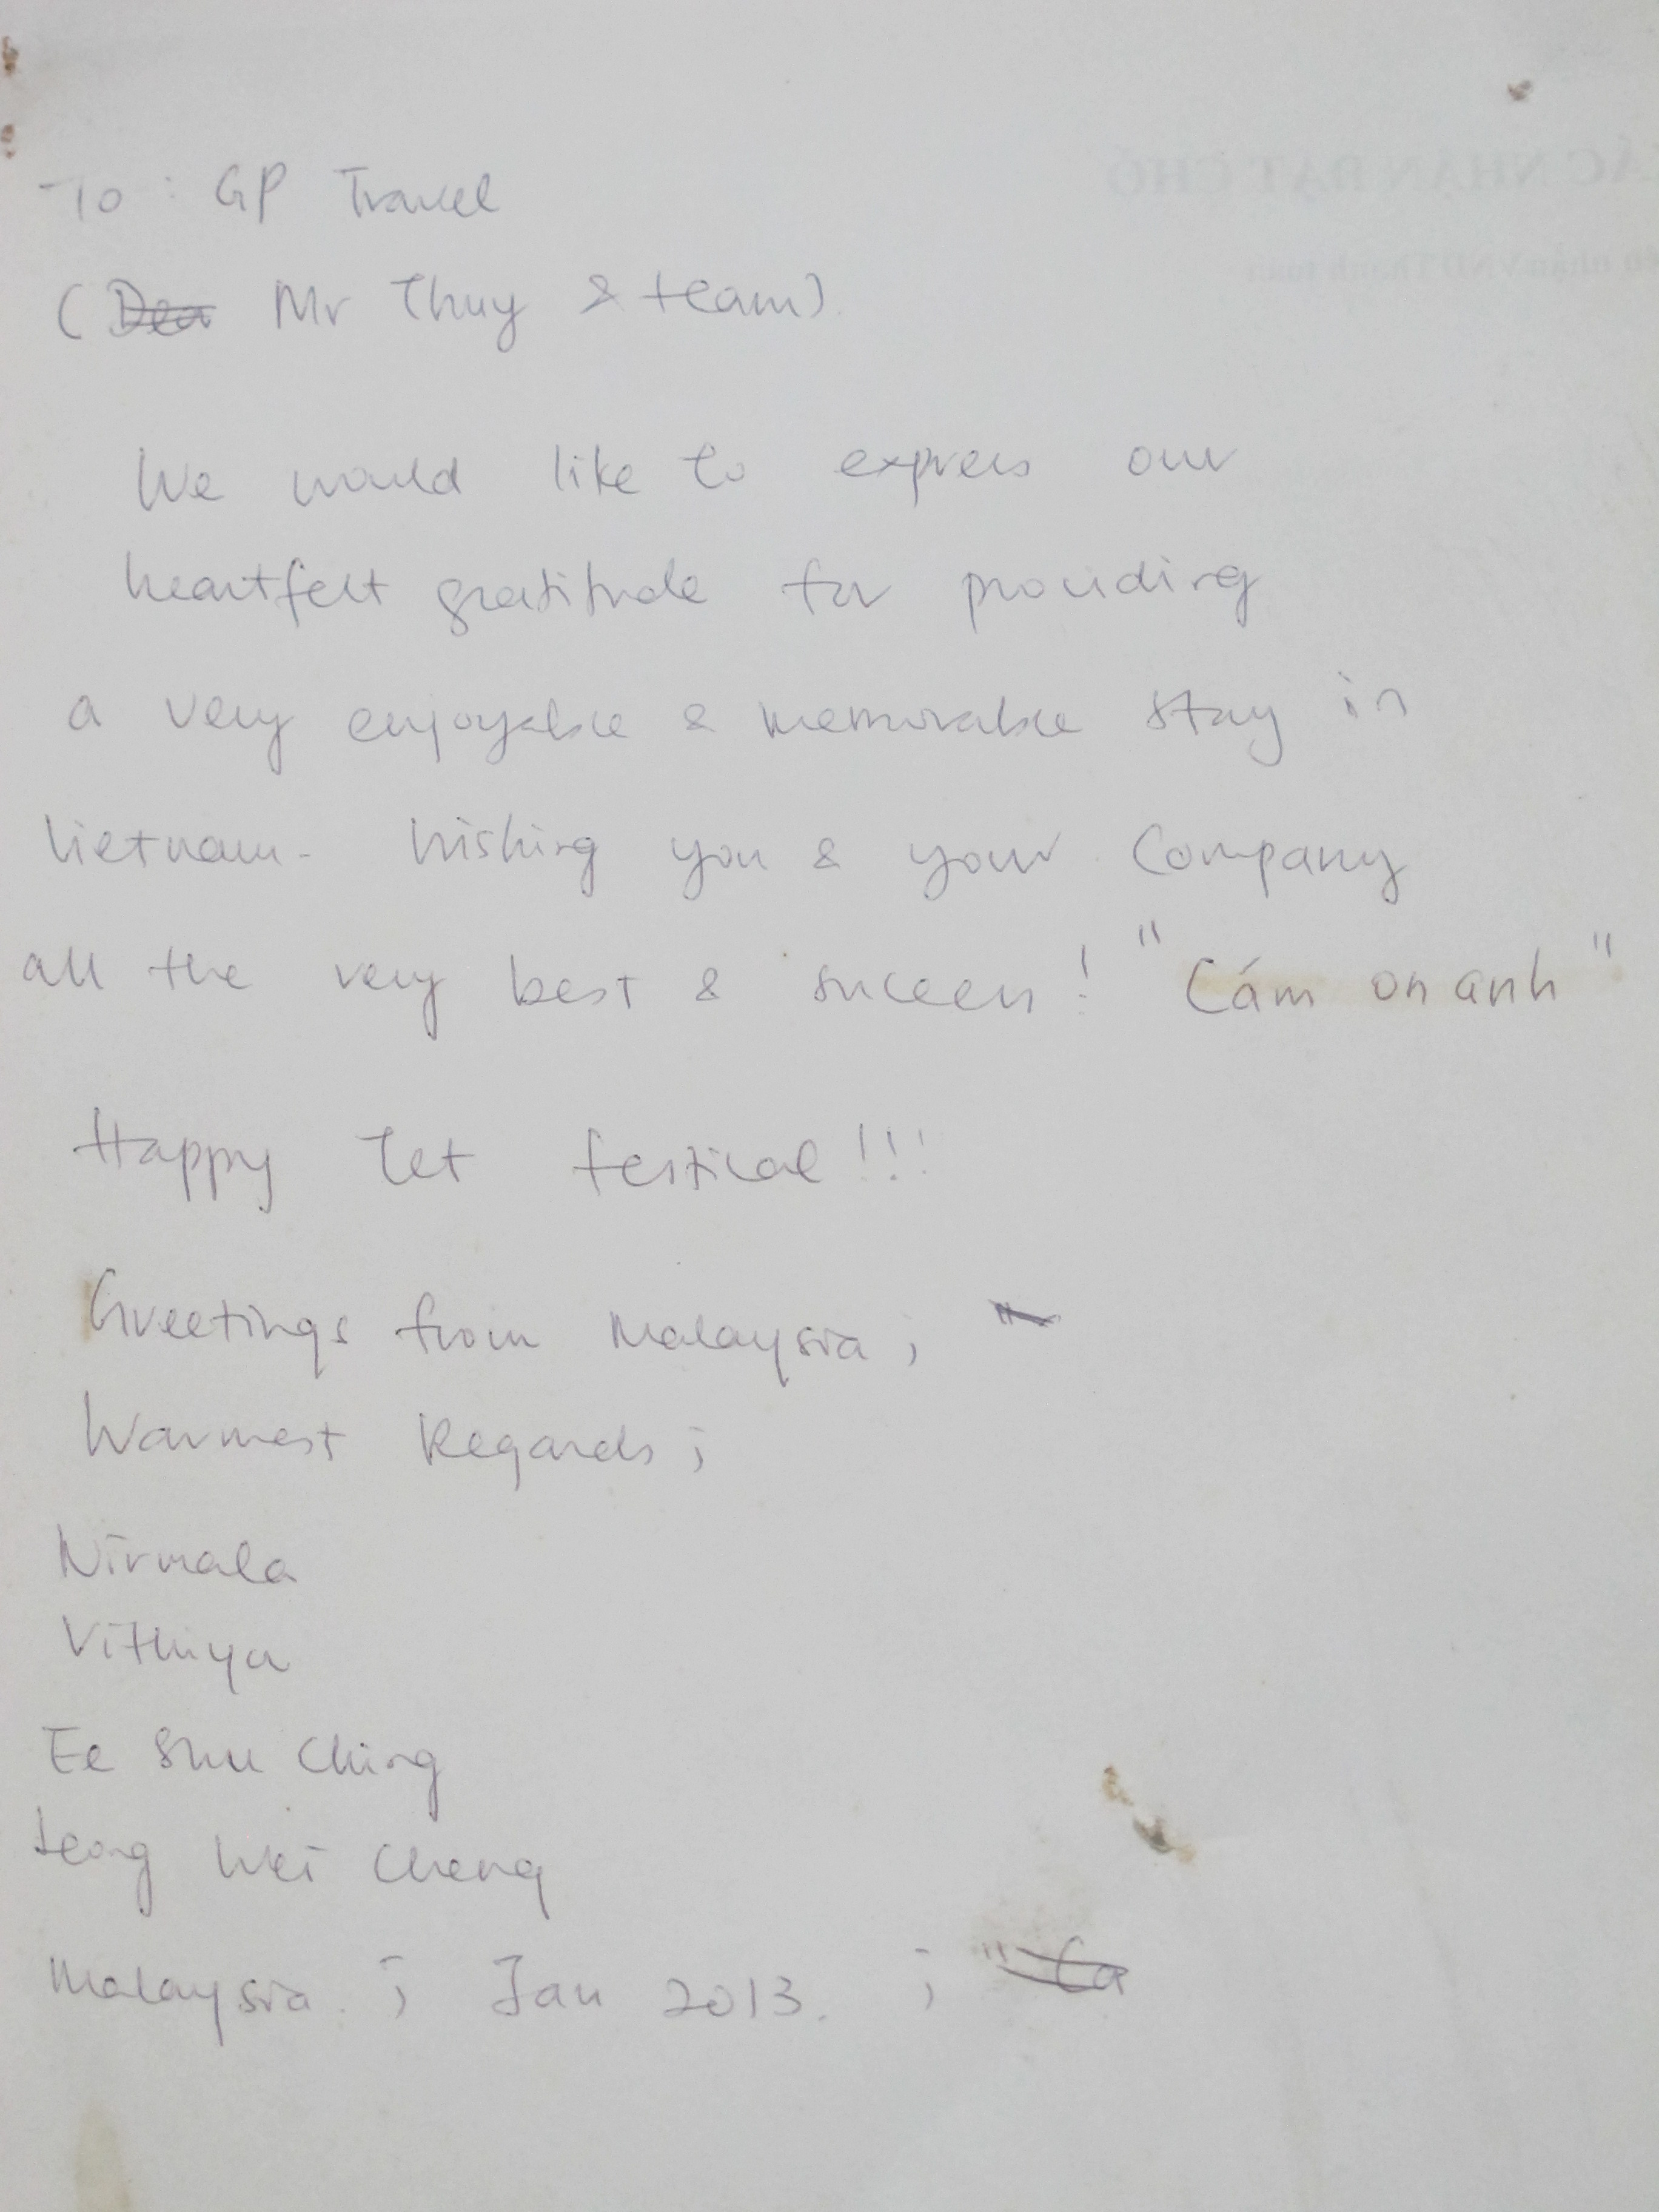 To : GP Travel
(Dea Mr Thuy & team)
We would like to express our
heartfelt gratitude for providing
a very enjoyable & memorable stay in
Vietnam. Wishing you & your Company
all the very best & success! "Cám on anh"
Happy Tet festival!!!
Greetings from Malaysia;
Warmest Regards;
Nirmala
Vithiya
Ee Shu Ching
Leong Wei Cheng
Malaysia. ; Jan 2013. ; "Ca
ÁC NHẬN ĐẶT CHỖ